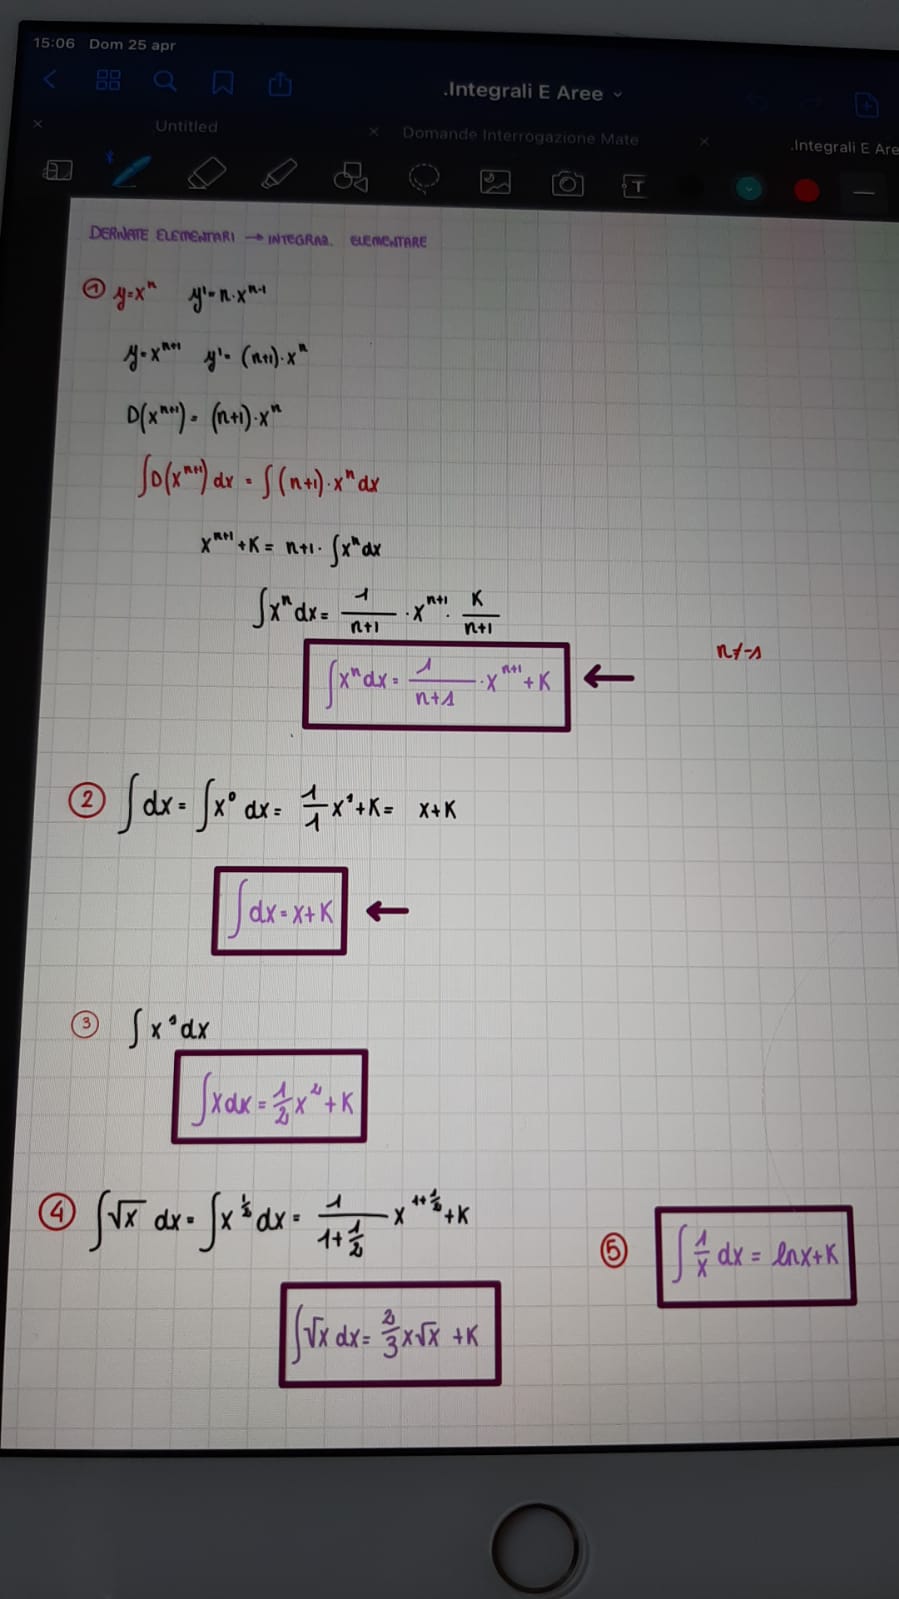 15:06 Dom 25 apr
.Integrali E Aree
Untitled
Domande Interrogazione Mate
.Integrali E Are
DERIVATE ELEMENTARI → INTEGRAZ. ELEMENTARE
① y=xⁿ y'=n·xⁿ⁻¹
y=xⁿ⁺¹ y'= (n+1)·xⁿ
D(xⁿ⁺¹) = (n+1)·xⁿ
∫D(xⁿ⁺¹) dx = ∫(n+1)·xⁿ dx
xⁿ⁺¹+K = n+1·∫xⁿ dx
∫xⁿ dx = 1/(n+1) · xⁿ⁺¹ · K/(n+1)
n≠-1
∫xⁿ dx = 1/(n+1) · xⁿ⁺¹ + K ←
② ∫dx = ∫x⁰ dx = 1/1 x¹+K = x+K
∫dx = x+K ←
③ ∫x¹dx
∫xdx = 1/2 x² + K
④ ∫√x dx = ∫x^(1/2) dx = 1/(1+1/2) x^(1+1/2) + K
⑤ ∫1/x dx = lnx+K
∫√x dx = 2/3 x√x + K